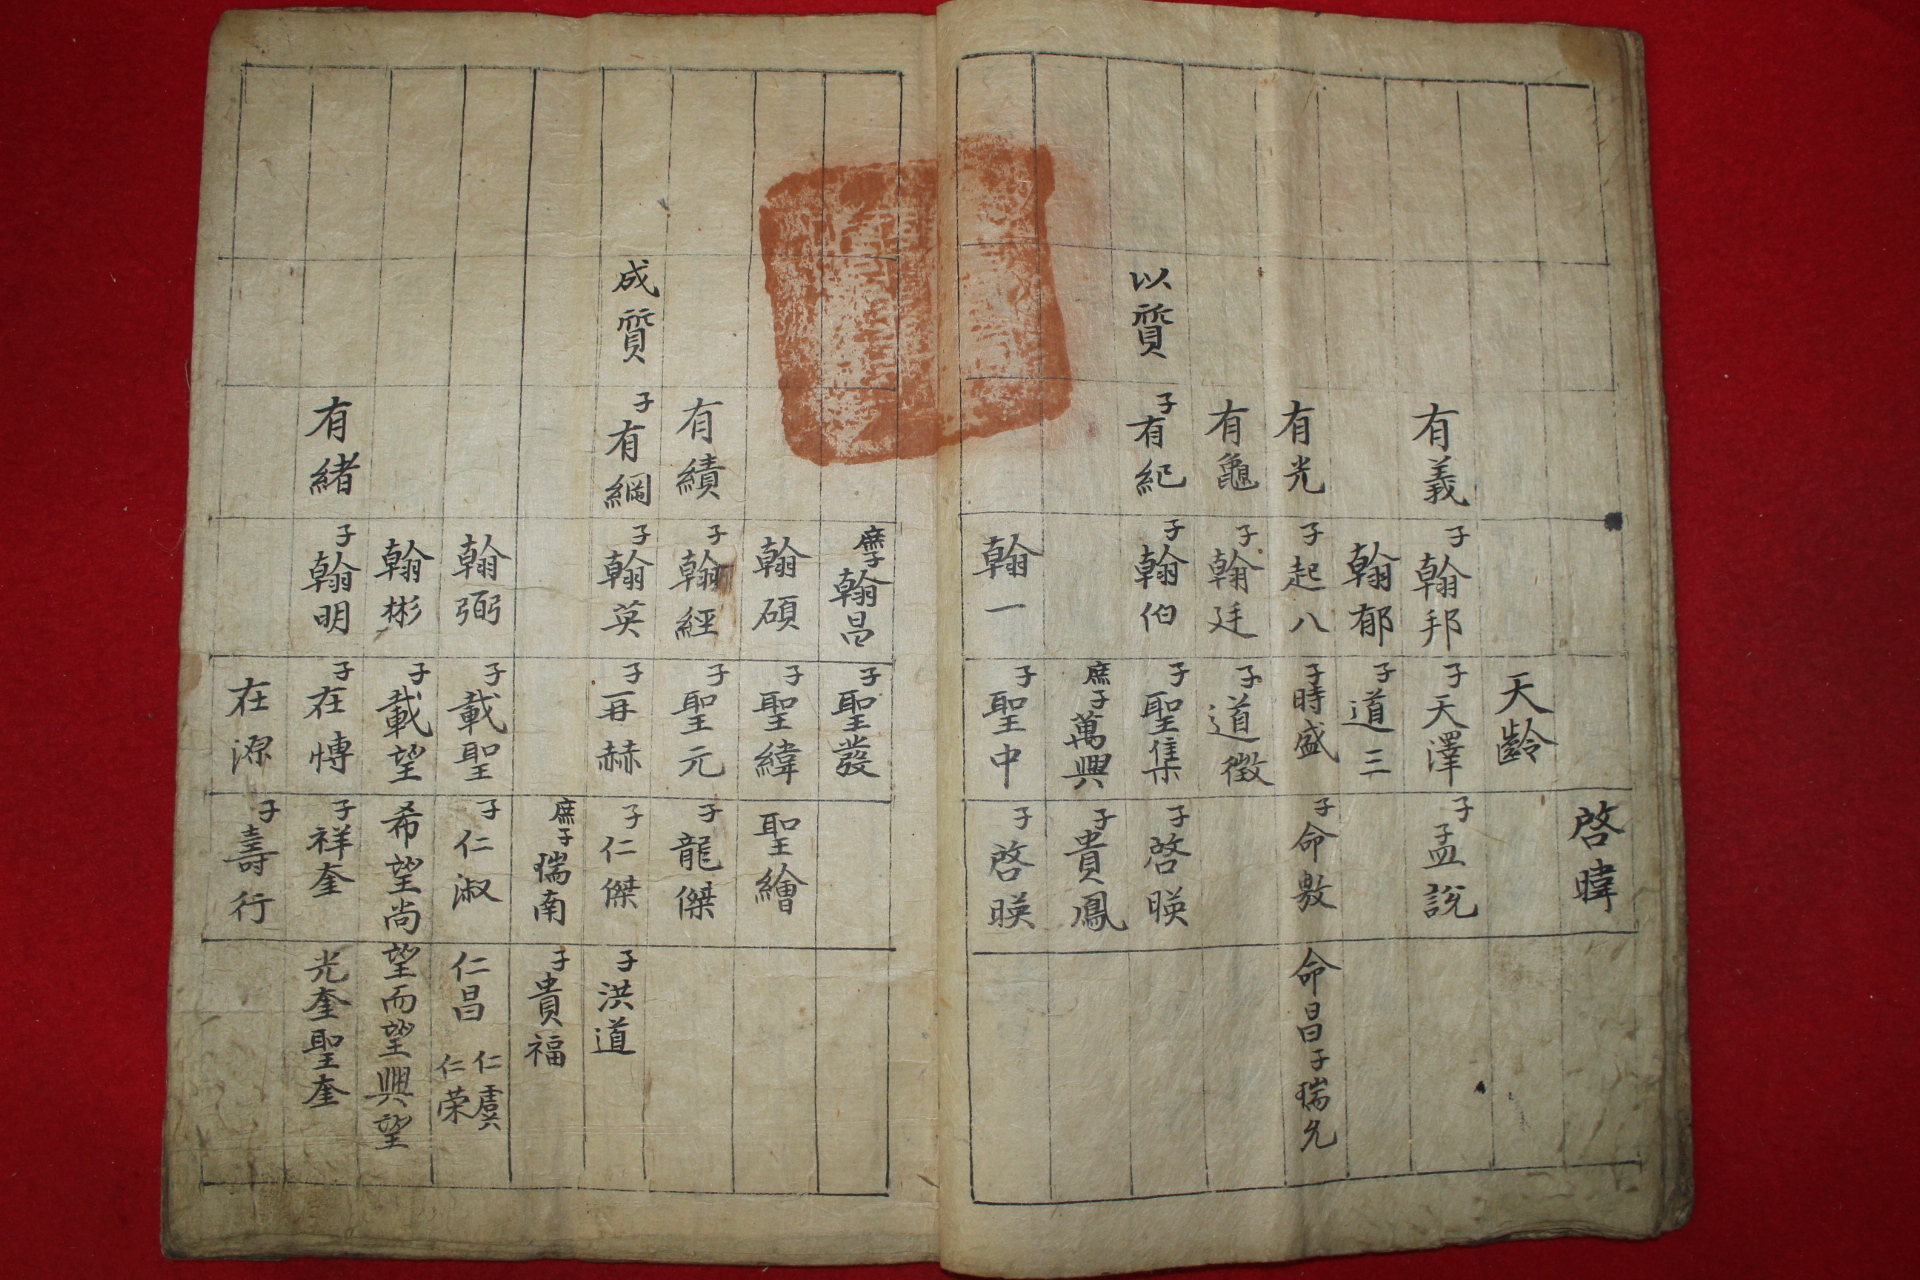 啓暐
天齡
有義 子翰邦 子天澤 子孟說
翰郁 子道三
有光 子起八 子時盛 子命敷 命昌子瑞允
有龜 子翰廷 子道徵
以質 子有紀 子翰伯 子聖集 子啓暎
庶子萬興 子貴鳳
翰一 子聖中 子啓暎
庶子翰昌 子聖發
翰碩 子聖緯 聖繪
有績 子翰經 子聖元 子龍傑
成質 子有綱 子翰英 子再赫 子仁傑 子洪道
庶子瑞南 子貴福
翰弼 子載聖 子仁淑 仁昌 仁虞 仁荣
翰彬 子載望 希望尚望而望興望
有緒 子翰明 子在愽 子祥奎 光奎聖奎
在源 子壽行